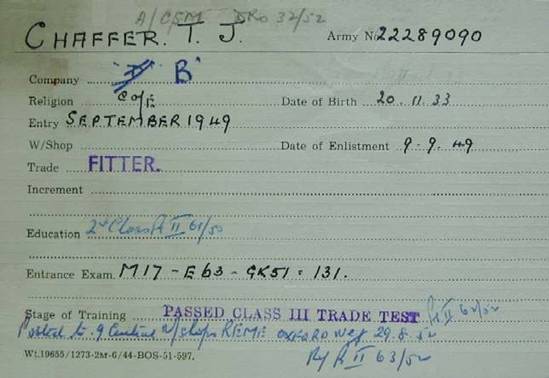 A/CFM DRO 32/52
CHAFFER. T. J. Army No 22289090
Company B
Religion C of E Date of Birth 20.11.33
Entry SEPTEMBER 1949
W/Shop Date of Enlistment 9.9.49
Trade FITTER.
Increment
Education 2nd Class Pt II 61/50
Entrance Exam. M17 - E63 - GK51 = 131.
Stage of Training PASSED CLASS III TRADE TEST Pt II 62/52
Posted to 9 Central W/shops REME OXFORD wef 29.8.52
Pt II 63/52
Wt.19655/1273-2M-6/44-BOS-51-597.